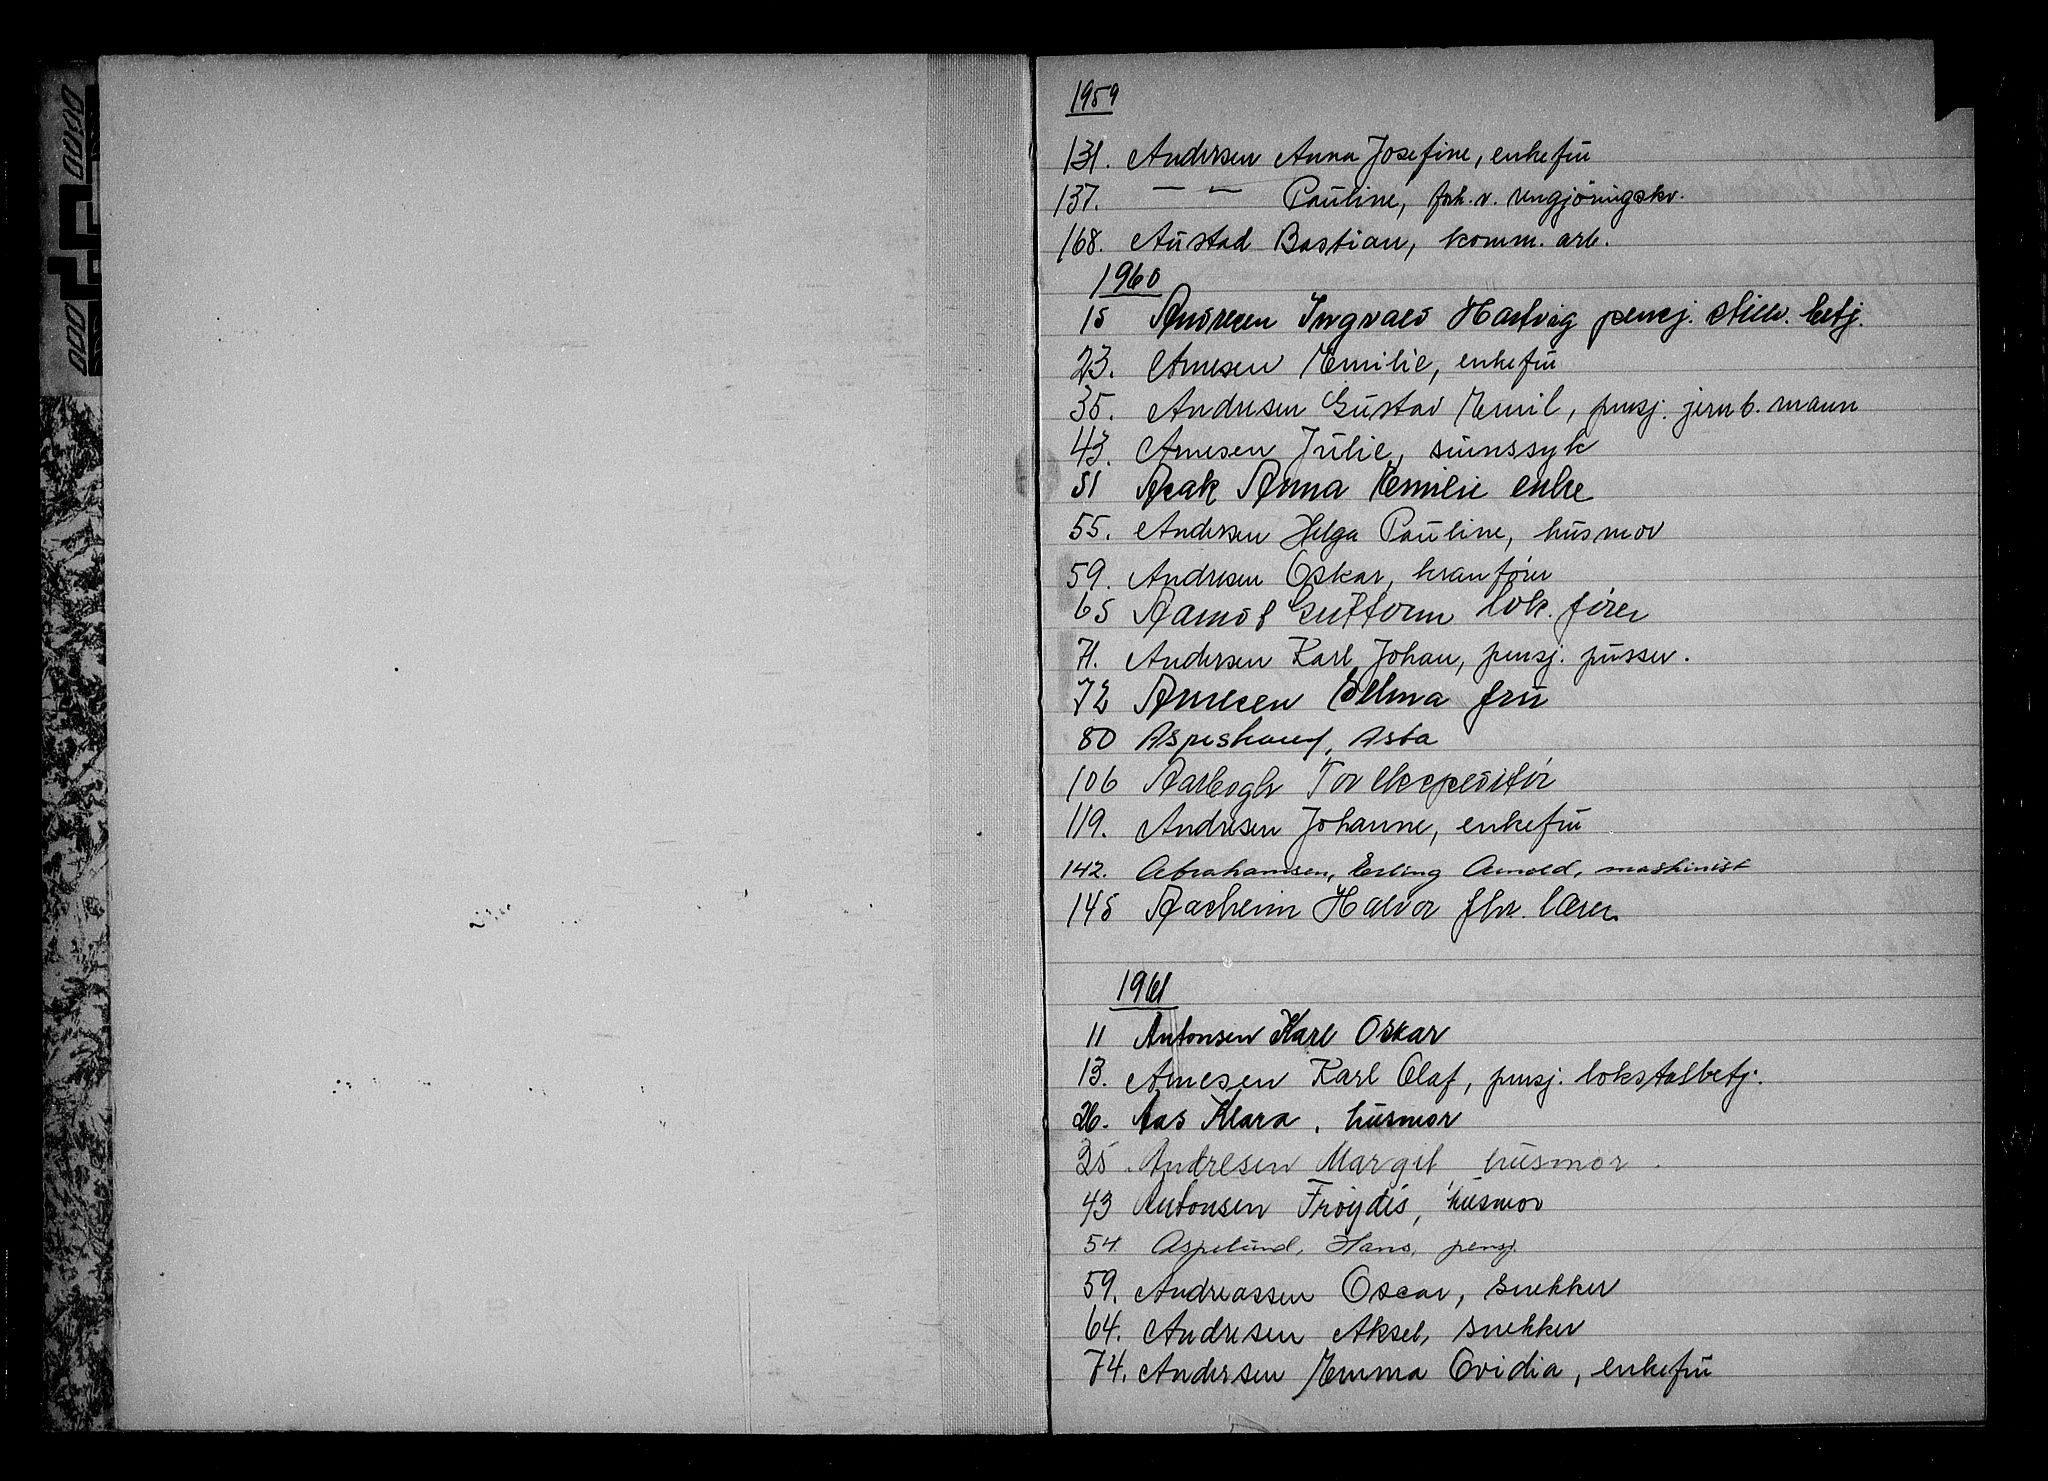 1959
131. Andersen Anna Josefine, enkefrü
137. — " — Pauline, forh. v. rengjöringskv.
168. Aüstad Bastian, komm. arb.
1960
15 Andresen Ingvald Hartvig pensj. stillv. betj.
23. Arnesen Emilie, enkefrü
35. Andresen Güstav Emil, pensj. jernb. mann
43. Arnesen Jülie, sinnssyk
51 Anna Emilie enke
55. Andersen Helga Paüline, hüsmor
59. Andresen Oskar, kranfører
65 Aamot Guttorm lok. fører
71. Andersen Karl Johan, pensj. püsser.
72 Arnesen Elma frü
80 Aspeshaug, Asta
106 Tor ekspeditør
119. Andresen Johanne, enkefrü
142. Abrahamsen, Erling Arnold, maskinist
145 Aasheim Halvor fhv. lærer
1961
11 Antonsen Karl Oskar
13. Arnesen Karl Olaf, pensj. lokstalbetj.
26. Aas Klara, hüsmor
35. Andresen Margit hüsmor.
43 Antonsen Frøydis, hüsmor
54. Aspelund, Hans, pensj.
59. Andreassen Oscar, snekker
64. Andresen Aksel, snekker
74. Andersen Emma Ovidia, enkefrü